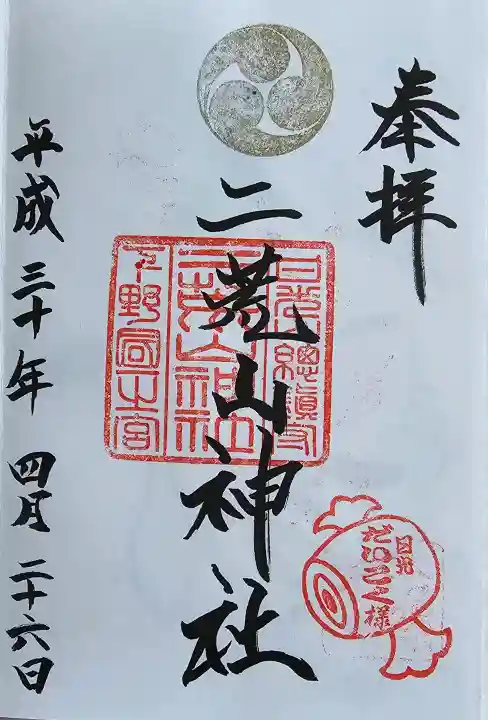 奉拝
日光総鎮守
二荒山神社
下野國一之宮
二荒山神社
日光
だいこく様
平成三十年 四月二十六日